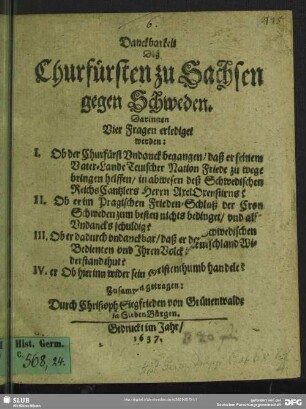 6.
Danckbarkeit
Deß
Churfürsten zu Sachsen
gegen Schweden.
Darinnen
Vier Fragen erlediget
werden:
I. Ob der Churfürst Undanck begangen / daß er seinem
Vater-Lande Teutscher Nation Friede zu wege
bringen helffen / in abwesen deß Schwedischen
Reichs Cantzlers Herrn Axel Oxenstirns?
II. Ob er im Pragischen Frieden-Schluß der Cron
Schweden zum besten nichts bedinget / und also
Undancks schuldig?
III. Ob er dadurch undanckbar / daß er den Schwedischen
Bedienten und Ihrem Volck in Teutschland Wi-
derstand thut?
IV. Ob er hierinn wider sein Christenthumb handele?
Zusamen getragen:
Durch Christoph Siegfrieden von Grünenwalde
in SiebenBürgen.
Gedruckt im Jahr /
1637.
Hist. Germ.
C. 568, 24.